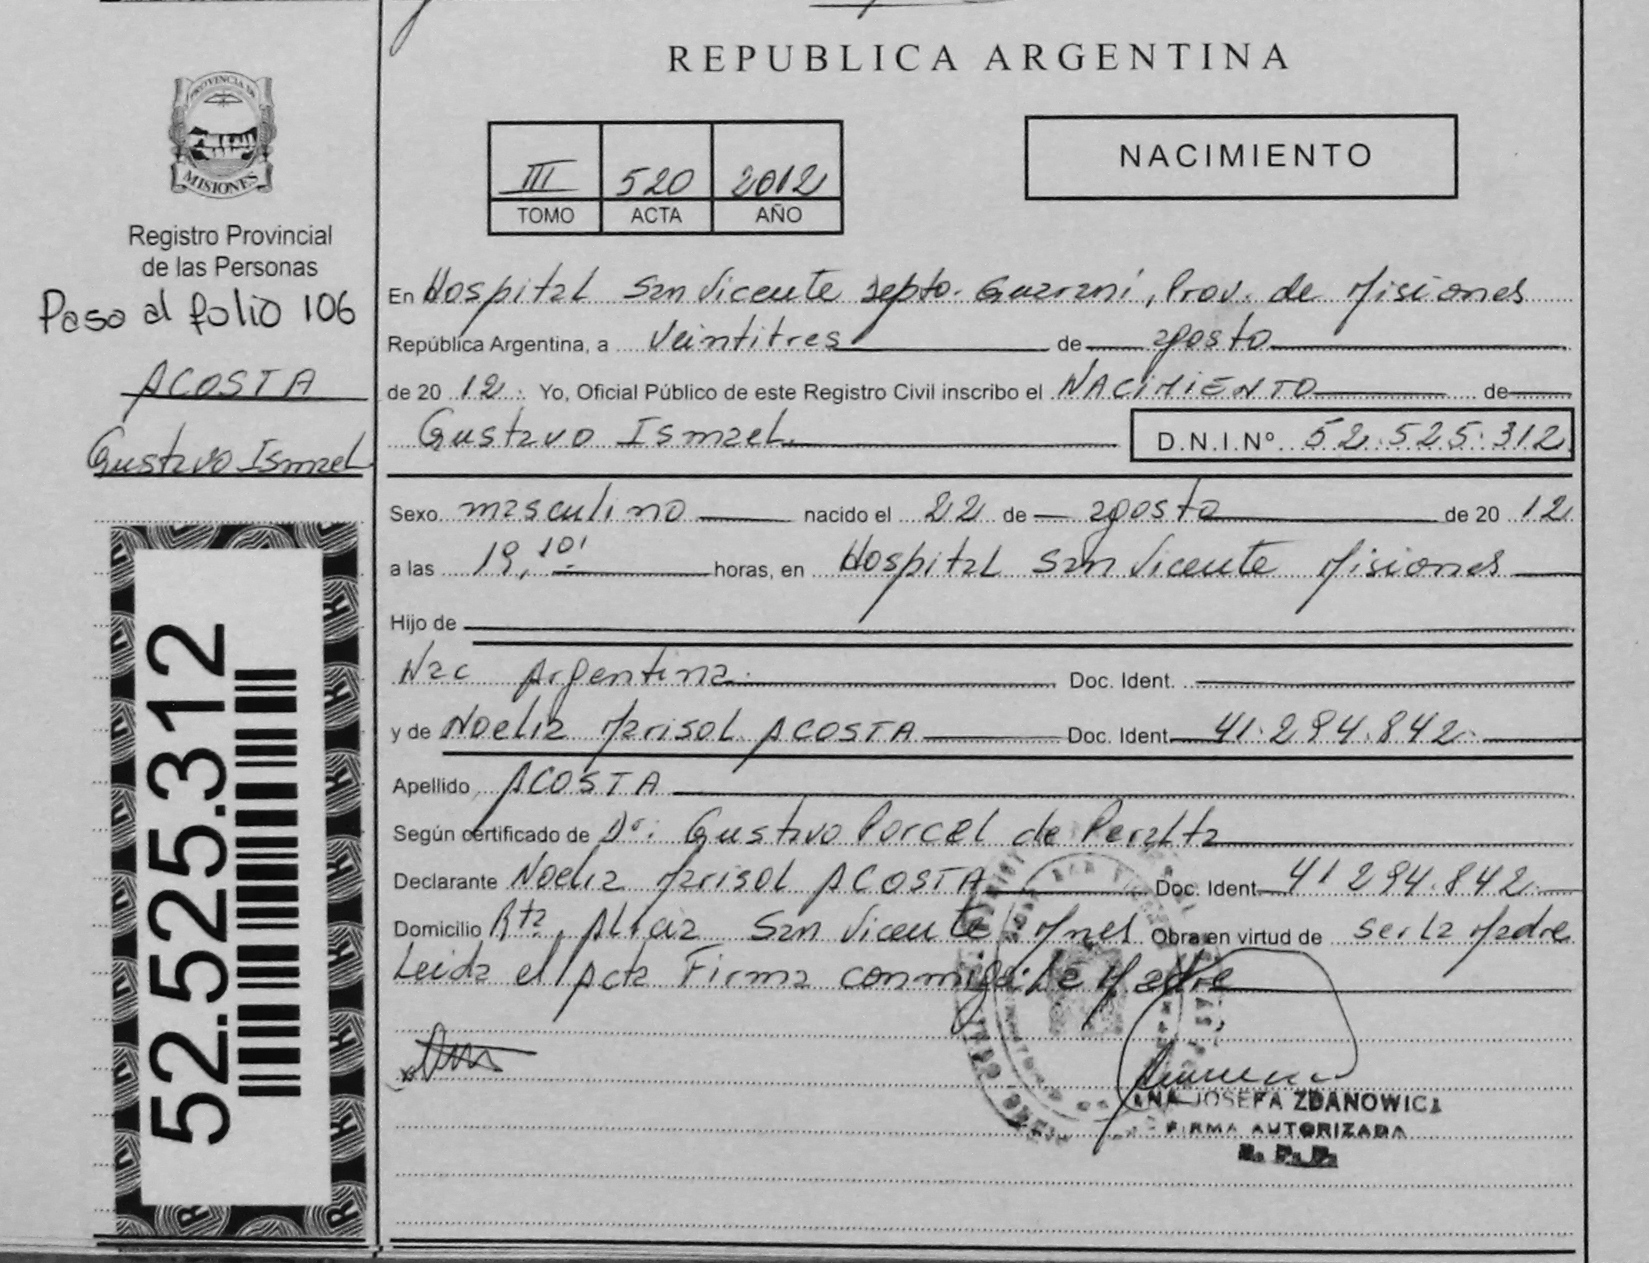 REPUBLICA ARGENTINA
PROVINCIA DE
MISIONES
Registro Provincial
de las Personas
Paso al folio 106
ACOSTA
Gustavo Ismael
52.525.312
III 520 2012
TOMO ACTA AÑO
NACIMIENTO
En Hospital San Vicente Depto. Guaraní, Prov. de Misiones
República Argentina, a veintitres de agosto
de 20 12. Yo, Oficial Público de este Registro Civil inscribo el NACIMIENTO de
Gustavo Ismael D.N.I.Nº 52.525.312
Sexo masculino nacido el 22 de agosto de 20 12
a las 19,10' horas, en Hospital San Vicente Misiones
Hijo de
Nac Argentina. Doc. Ident.
y de Noelia Marisol ACOSTA Doc. Ident. 41.294.842.
Apellido ACOSTA
Según certificado de Dr: Gustavo Porcel de Peralta
Declarante Noelia Marisol ACOSTA Doc. Ident. 41 294.842.
Domicilio Rta. Alicia San Vicente Mnes Obra en virtud de ser la Madre
Leida el Acta Firma conmigo La Madre
ANA JOSEFA ZDANOWICZ
FIRMA AUTORIZADA
R. P. P.